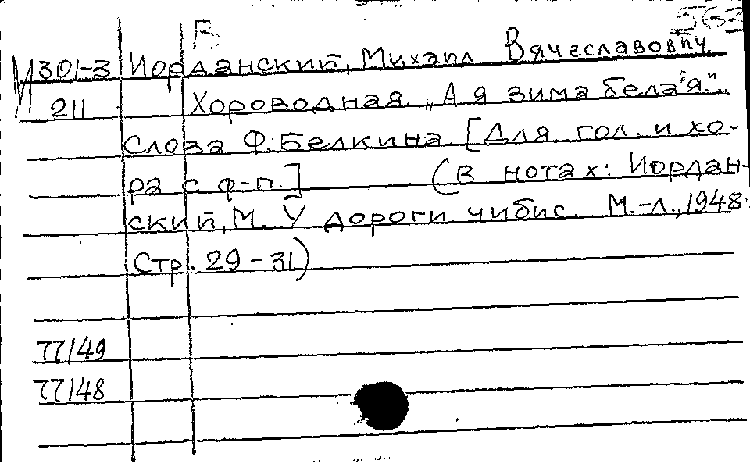 В 563
М301-3 Иорданский, Михаил Вячеславович
211 Хороводная „А я зима белая".
Слова Ф. Белкина. [Для гол. и хо-
ра с ф-п.] (В нотах: Иордан-
ский, М. У дороги чибис. М.-Л., 1948.
Стр. 29-31)
77/49
77/48